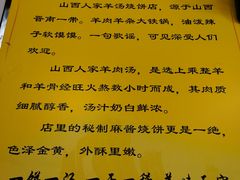 山西人家羊汤烧饼店，源于山西
晋南一带。羊肉羊杂大铁锅，油泼辣
子软馍馍。一句歌谣，可见深受人们
欢迎。
山西人家羊肉汤，是选上乘整羊
和羊骨经旺火熬数小时而成，其肉质
细腻醇香，汤汁奶白鲜浓。
店里的秘制麻酱烧饼更是一绝，
色泽金黄，外酥里嫩。